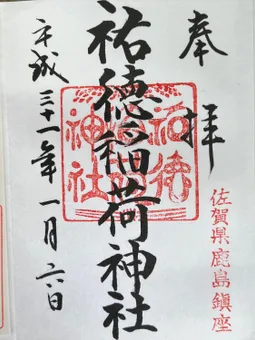 奉拝
佐賀県鹿島鎮座
祐徳稲荷神社
祐徳稲荷神社
平成三十一年一月六日